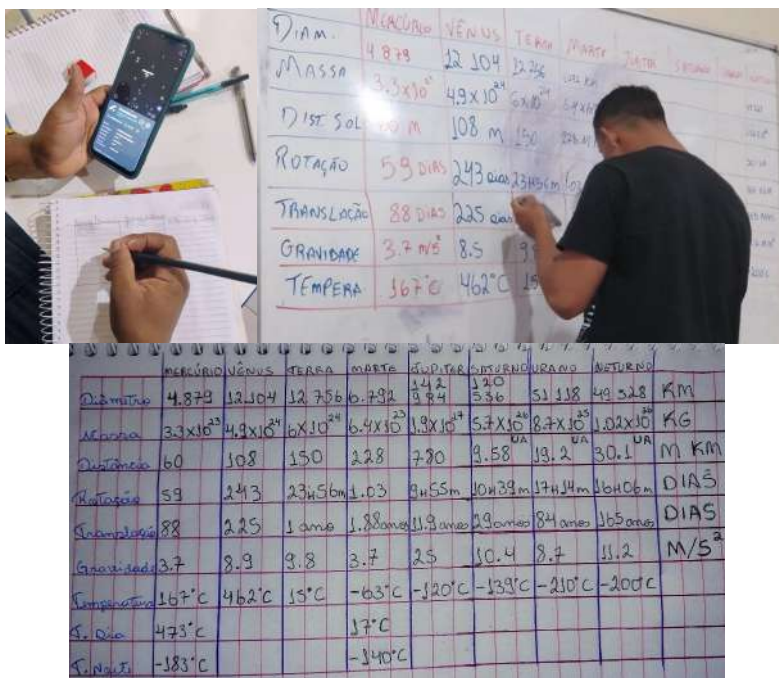 DIAM. MERCÚRIO VÊNUS TERRA MARTE JUPITER SATURNO
4.879 12 104 12.756
MASSA 4.9x10²⁴ 6x10²⁴
DIST SOL 108 M 150
ROTAÇÃO 59 DIAS 243 DIAS 23H56m
TRANSLAÇÃO 88 DIAS 225 DIAS
GRAVIDADE 3.7 m/s² 8.5 9
TEMPERA 167°C 462°C 15
MERCÚRIO VÊNUS TERRA MARTE JUPITER SATURNO URANO NETURNO
Diâmetro 4.879 12.104 12 756 6.792 142 984 120 536 51 118 49 528 KM
Massa 3.3x10²³ 4.9x10²⁴ 6x10²⁴ 6.4x10²³ 1.9x10²⁷ 5.7x10²⁶ 8.7x10²⁵ 1.02x10²⁶ KG
Distância 60 108 150 228 780 9.58 UA 19.2 UA 30.1 UA M KM
Rotação 59 243 23H56m 1.03 9H55m 10H39m 17H14m 16H06m DIAS
Translação 88 225 1 ano 1.88anos 11.9 anos 29anos 84 anos 165anos DIAS
Gravidade 3.7 8.9 9.8 3.7 25 10.4 8.7 11.2 M/S²
Temperatura 167°C 462°C 15°C -63°C -120°C -139°C -210°C -200°C
T. Dia 473°C 17°C
T. Noite -183°C -140°C